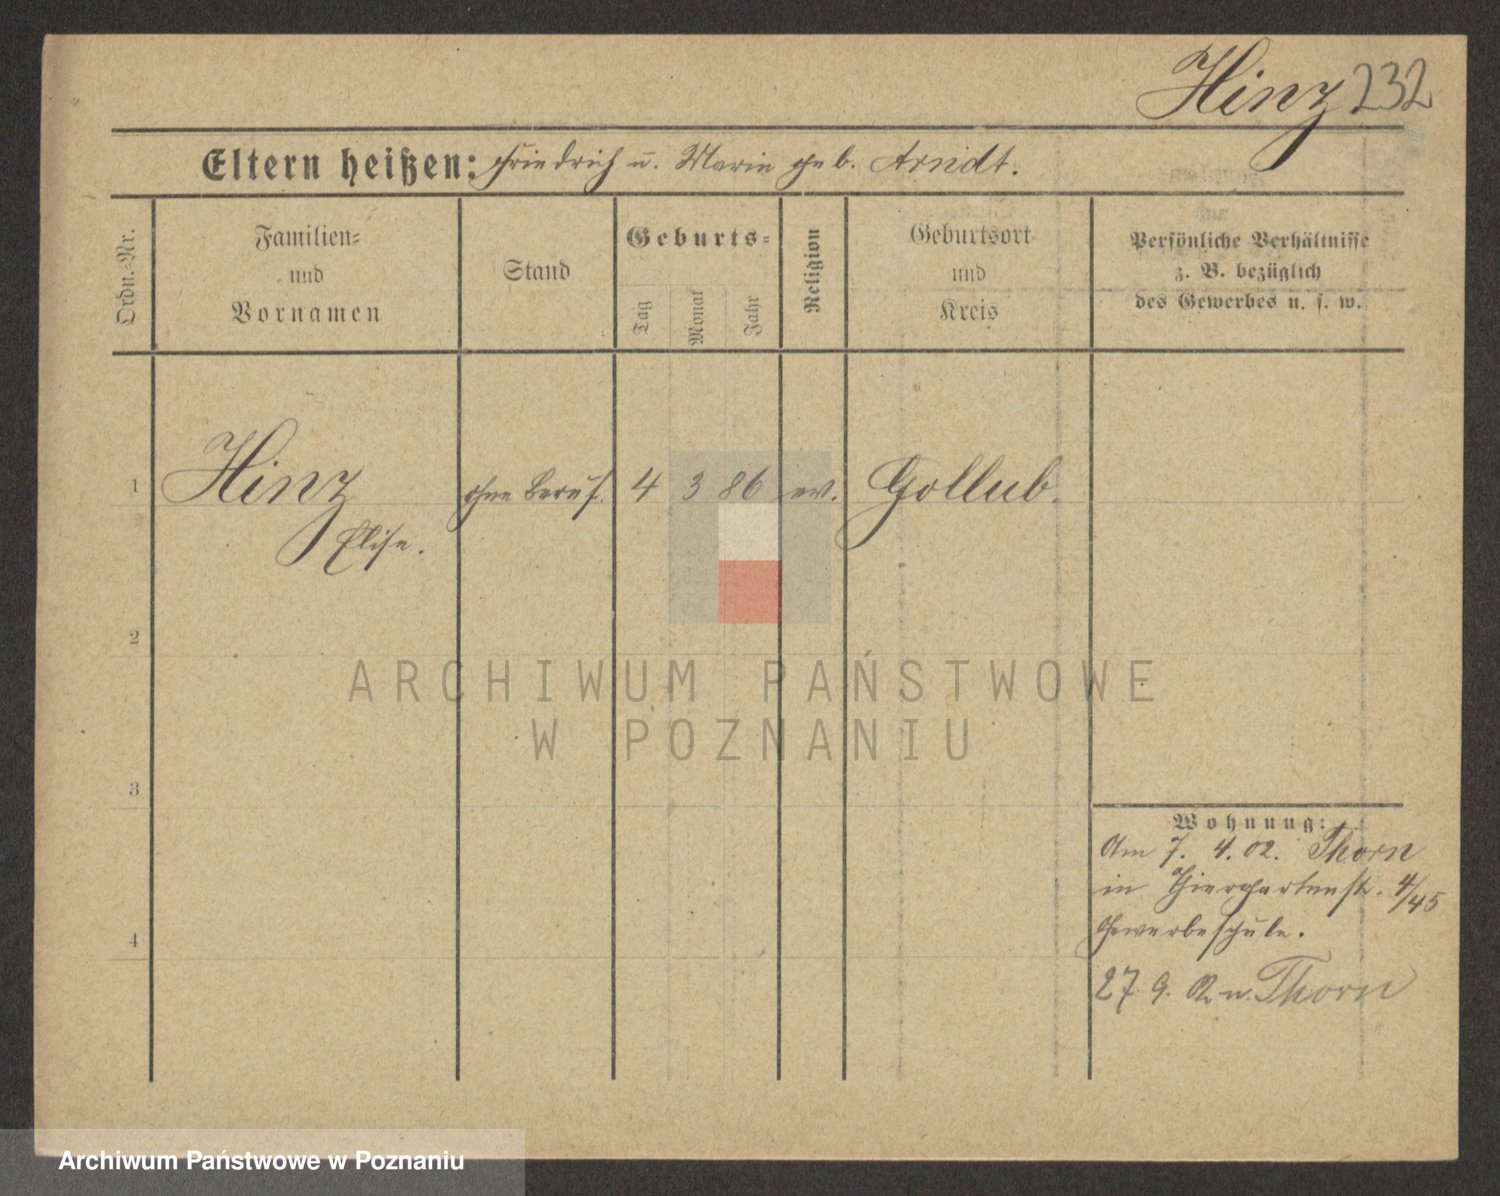 Hinz 232
Eltern heißen: Friedrich u. Marie geb. Arndt.
Ordn.-Nr.
Familien-
und
Vornamen
Stand
Geburts-
Tag
Monat
Jahr
Religion
Geburtsort
und
Kreis
Persönliche Verhältnisse
z. B. bezüglich
des Gewerbes u. s. w.
1 Hinz ohne Beruf. 4 3 86 ev. Gollub.
Elise.
2
ARCHIWUM PAŃSTWOWE
W POZNANIU
3
Wohnung:
Am 7. 4. 02. Thorn
in Thiergartenstr. 4/45
Gewerbeschule.
4
27. 9. n. Thorn
Archiwum Państwowe w Poznaniu